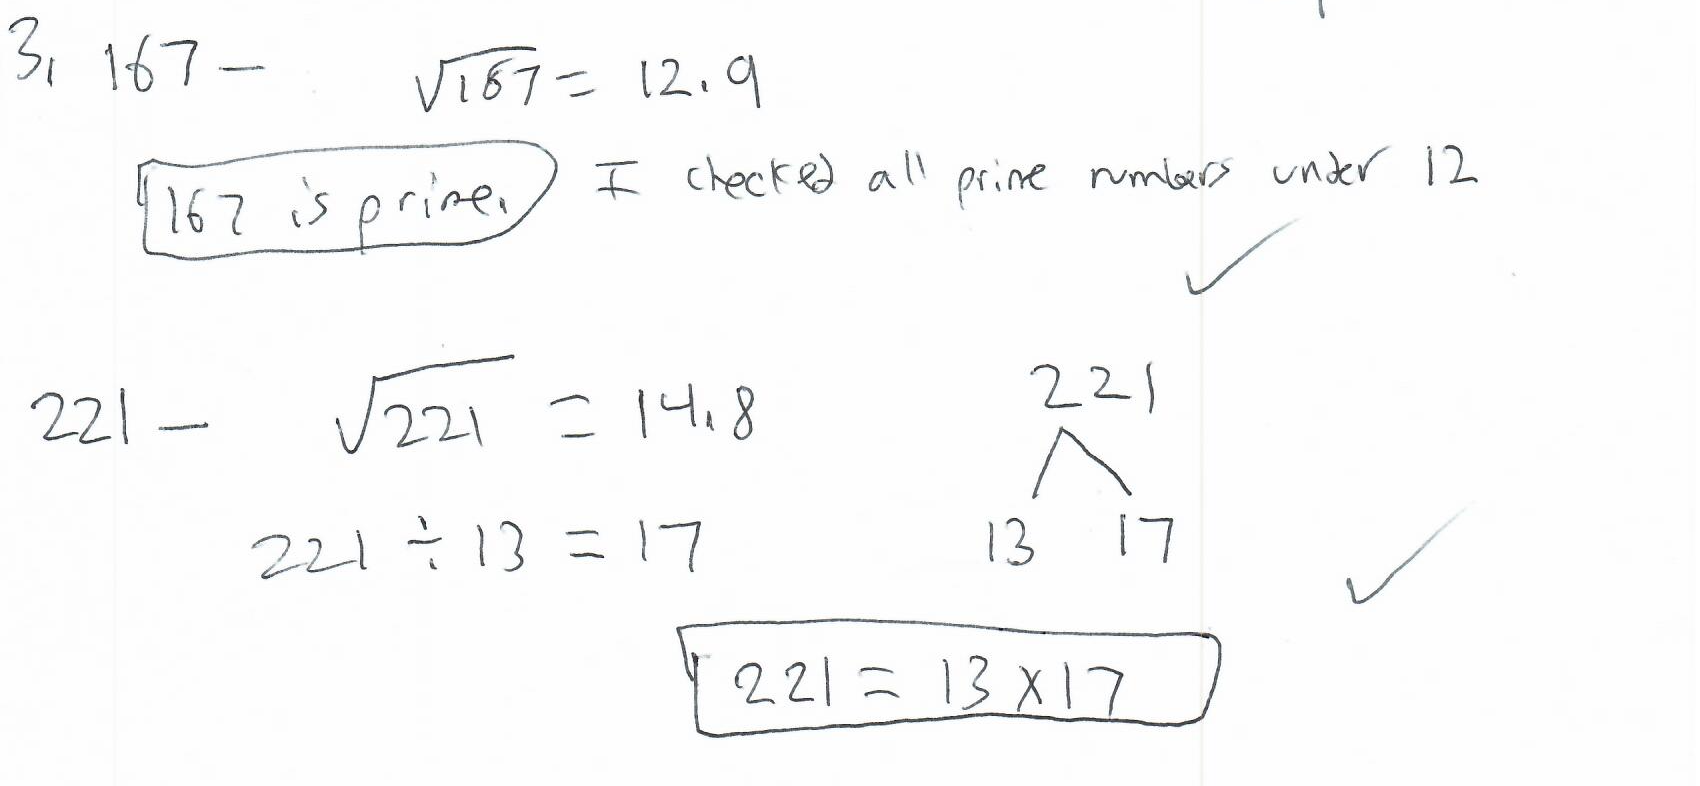 3. 167 - √167 = 12.9
167 is prime. I checked all prime numbers under 12
221 - √221 = 14.8
221
221 ÷ 13 = 17
13 17
221 = 13 x 17